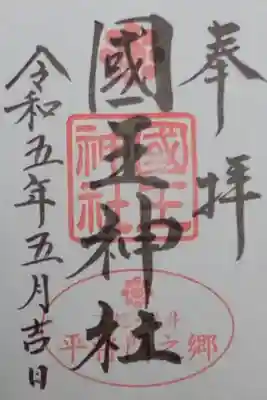 奉拝
國王神社
令和五年五月吉日
國王神社
平将門之郷